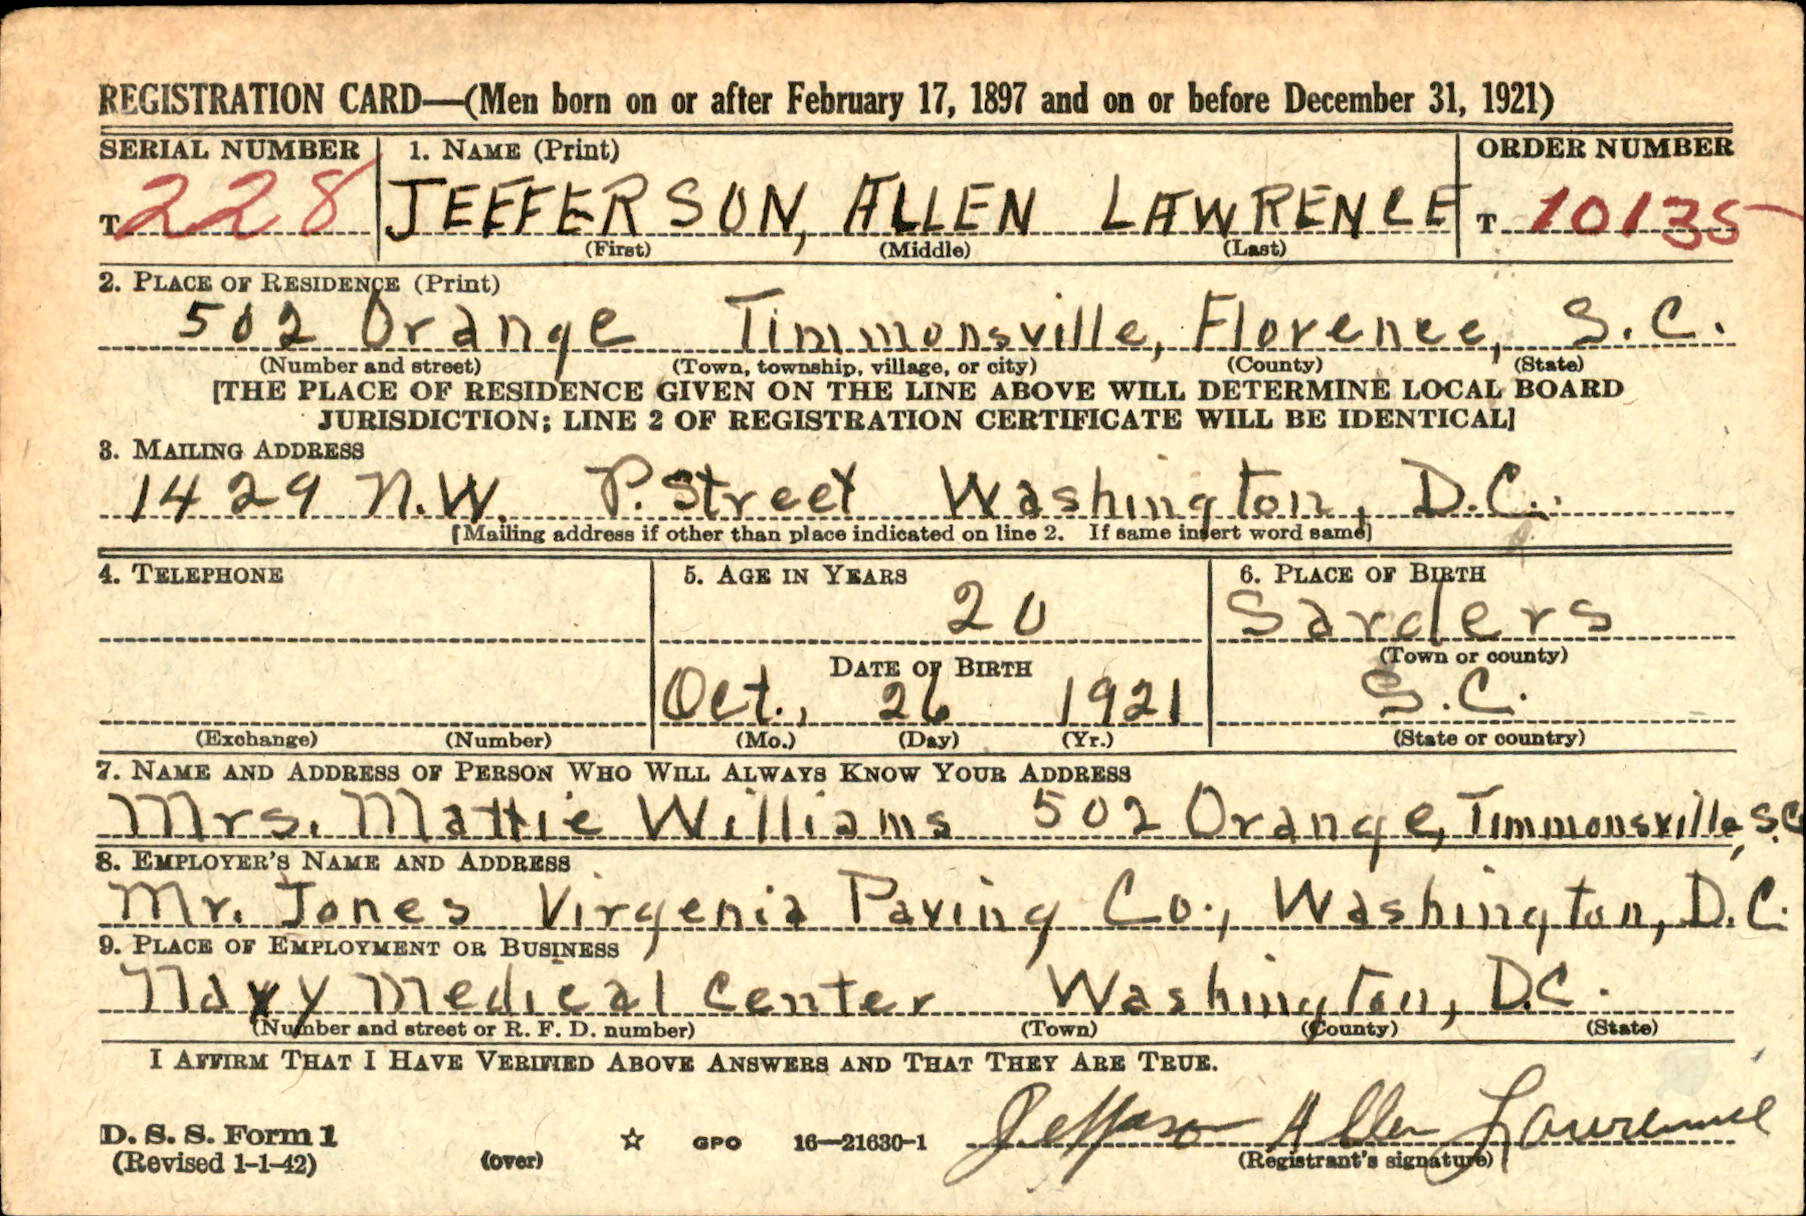 REGISTRATION CARD—(Men born on or after February 17, 1897 and on or before December 31, 1921)
SERIAL NUMBER 1. NAME (Print) ORDER NUMBER
T 228 JEFFERSON, ALLEN LAWRENCE T 10135
(First) (Middle) (Last)
2. PLACE OF RESIDENCE (Print)
502 Orange Timmonsville, Florence, S.C.
(Number and street) (Town, township, village, or city) (County) (State)
[THE PLACE OF RESIDENCE GIVEN ON THE LINE ABOVE WILL DETERMINE LOCAL BOARD
JURISDICTION; LINE 2 OF REGISTRATION CERTIFICATE WILL BE IDENTICAL]
3. MAILING ADDRESS
1429 N.W. P. Street Washington, D.C.
[Mailing address if other than place indicated on line 2. If same insert word same]
4. TELEPHONE 5. AGE IN YEARS 6. PLACE OF BIRTH
20 Sarders
DATE OF BIRTH (Town or county)
Oct., 26 1921 S.C.
(Exchange) (Number) (Mo.) (Day) (Yr.) (State or country)
7. NAME AND ADDRESS OF PERSON WHO WILL ALWAYS KNOW YOUR ADDRESS
Mrs. Mattie Williams 502 Orange, Timmonsville, S.C
8. EMPLOYER'S NAME AND ADDRESS
Mr. Jones Virgenia Paving Co., Washington, D.C.
9. PLACE OF EMPLOYMENT OR BUSINESS
Navy Medical Center Washington, D.C.
(Number and street or R. F. D. number) (Town) (County) (State)
I AFFIRM THAT I HAVE VERIFIED ABOVE ANSWERS AND THAT THEY ARE TRUE.
D. S. S. Form 1
(Revised 1-1-42) (over) ☆ GPO 16—21630-1 Jefferson Allen Lawrence
(Registrant's signature)